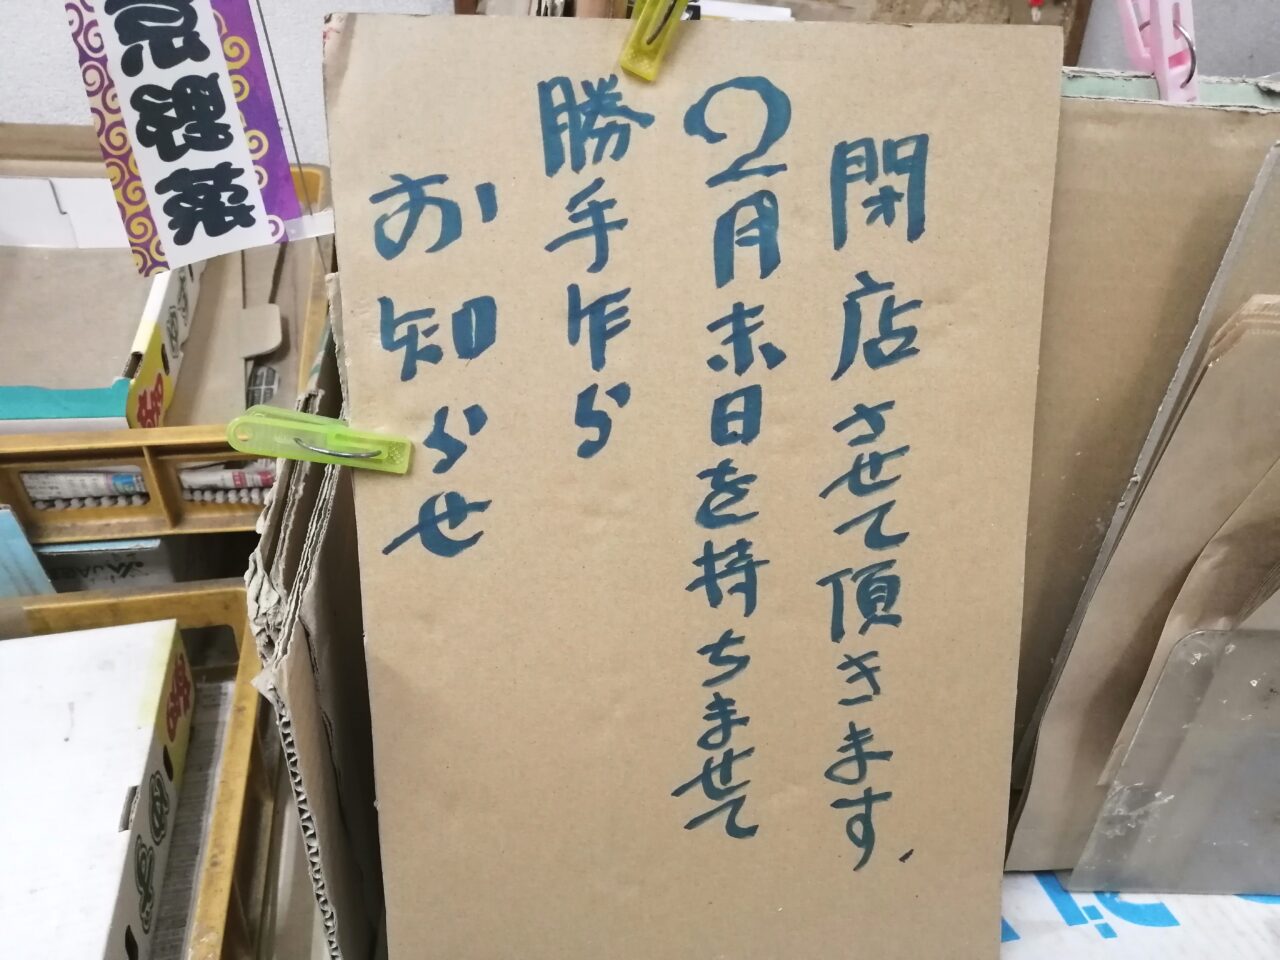 お知らせ
勝手乍ら
2月末日を持ちませて
閉店させて頂きます、
京野菜